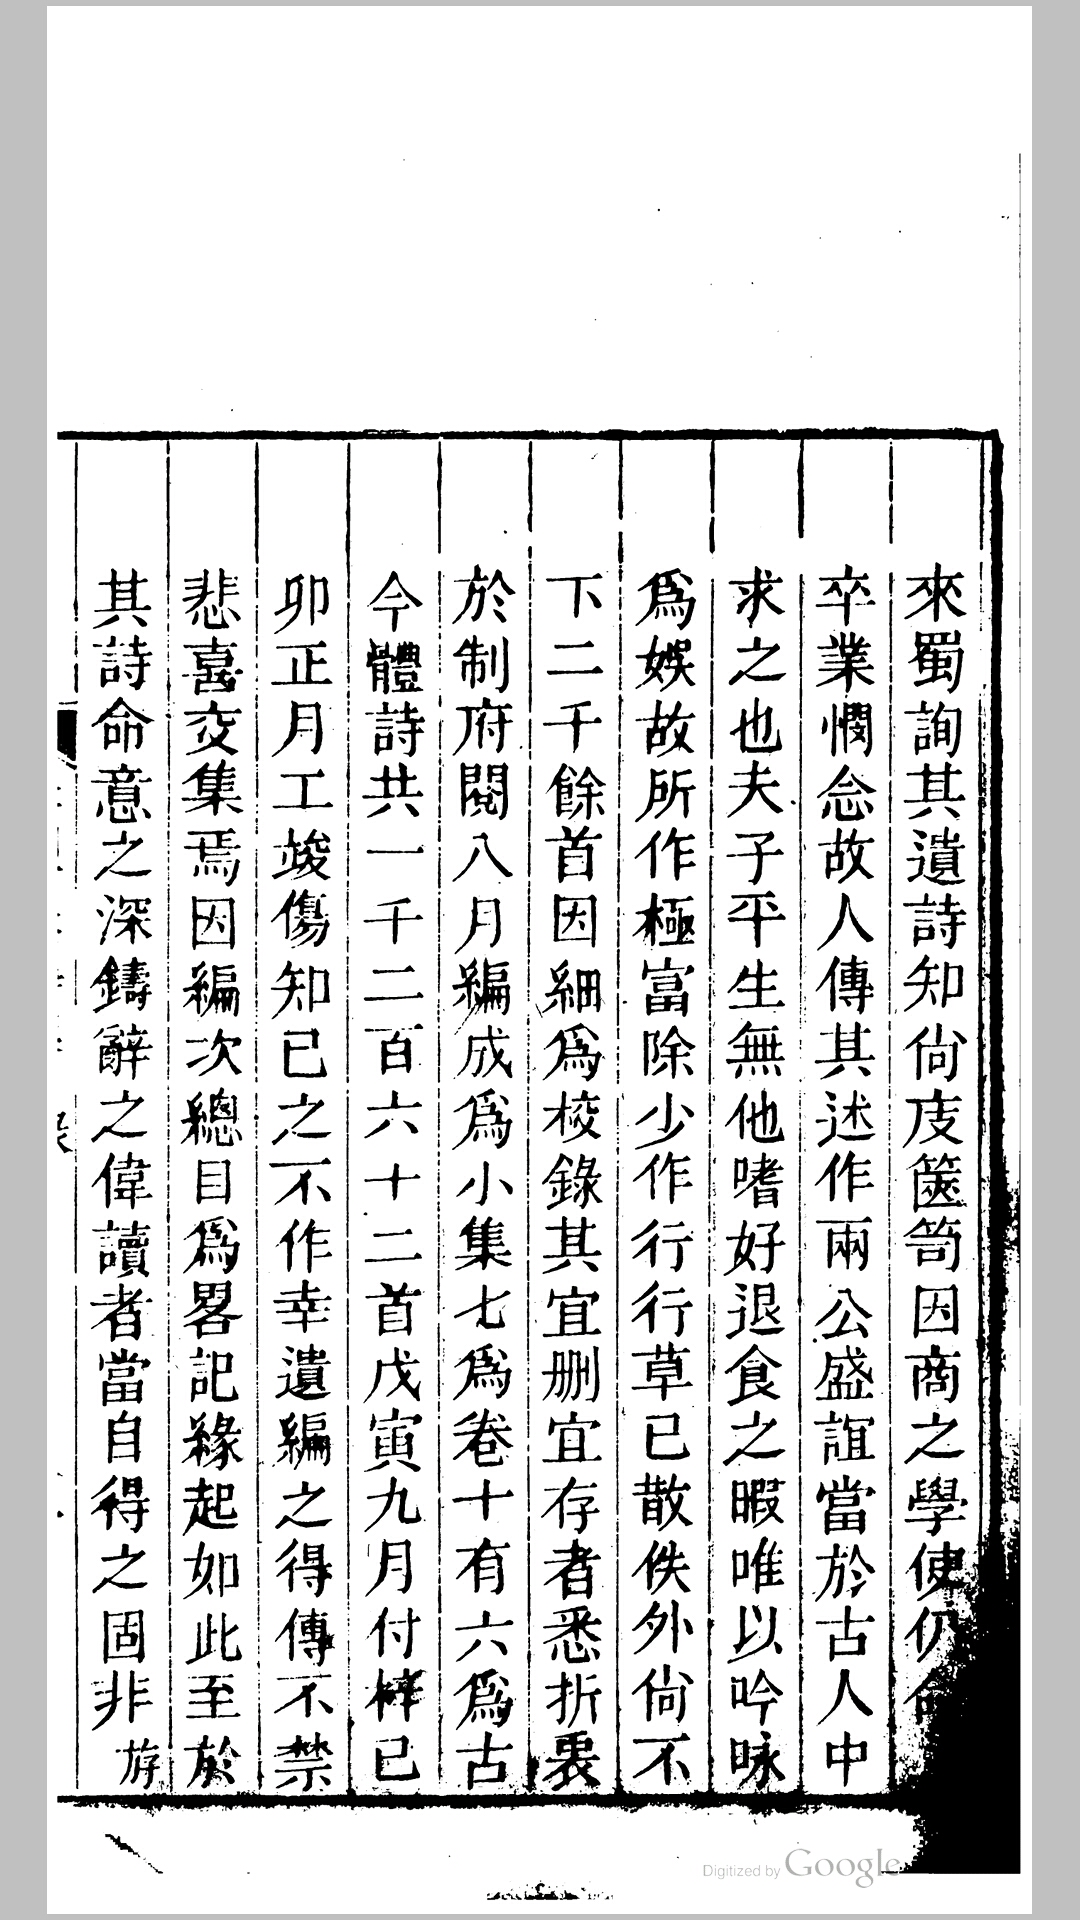 來蜀詢其遺詩知尙庋篋笥因商之學使仍
卒業憫念故人傳其述作兩公盛誼當於古人中
求之也夫子平生無他嗜好退食之暇唯以吟咏
爲娛故所作極富除少作行行草已散佚外尙不
下二千餘首因細爲校錄其宜刪宜存者悉折衷
於制府閱八月編成爲小集七爲卷十有六爲古
今體詩共一千二百六十二首戊寅九月付梓已
卯正月工竣傷知已之不作幸遺編之得傳不禁
悲喜交集焉因編次總目爲畧記緣起如此至於
其詩命意之深鑄辭之偉讀者當自得之固非游
Digitized by Google